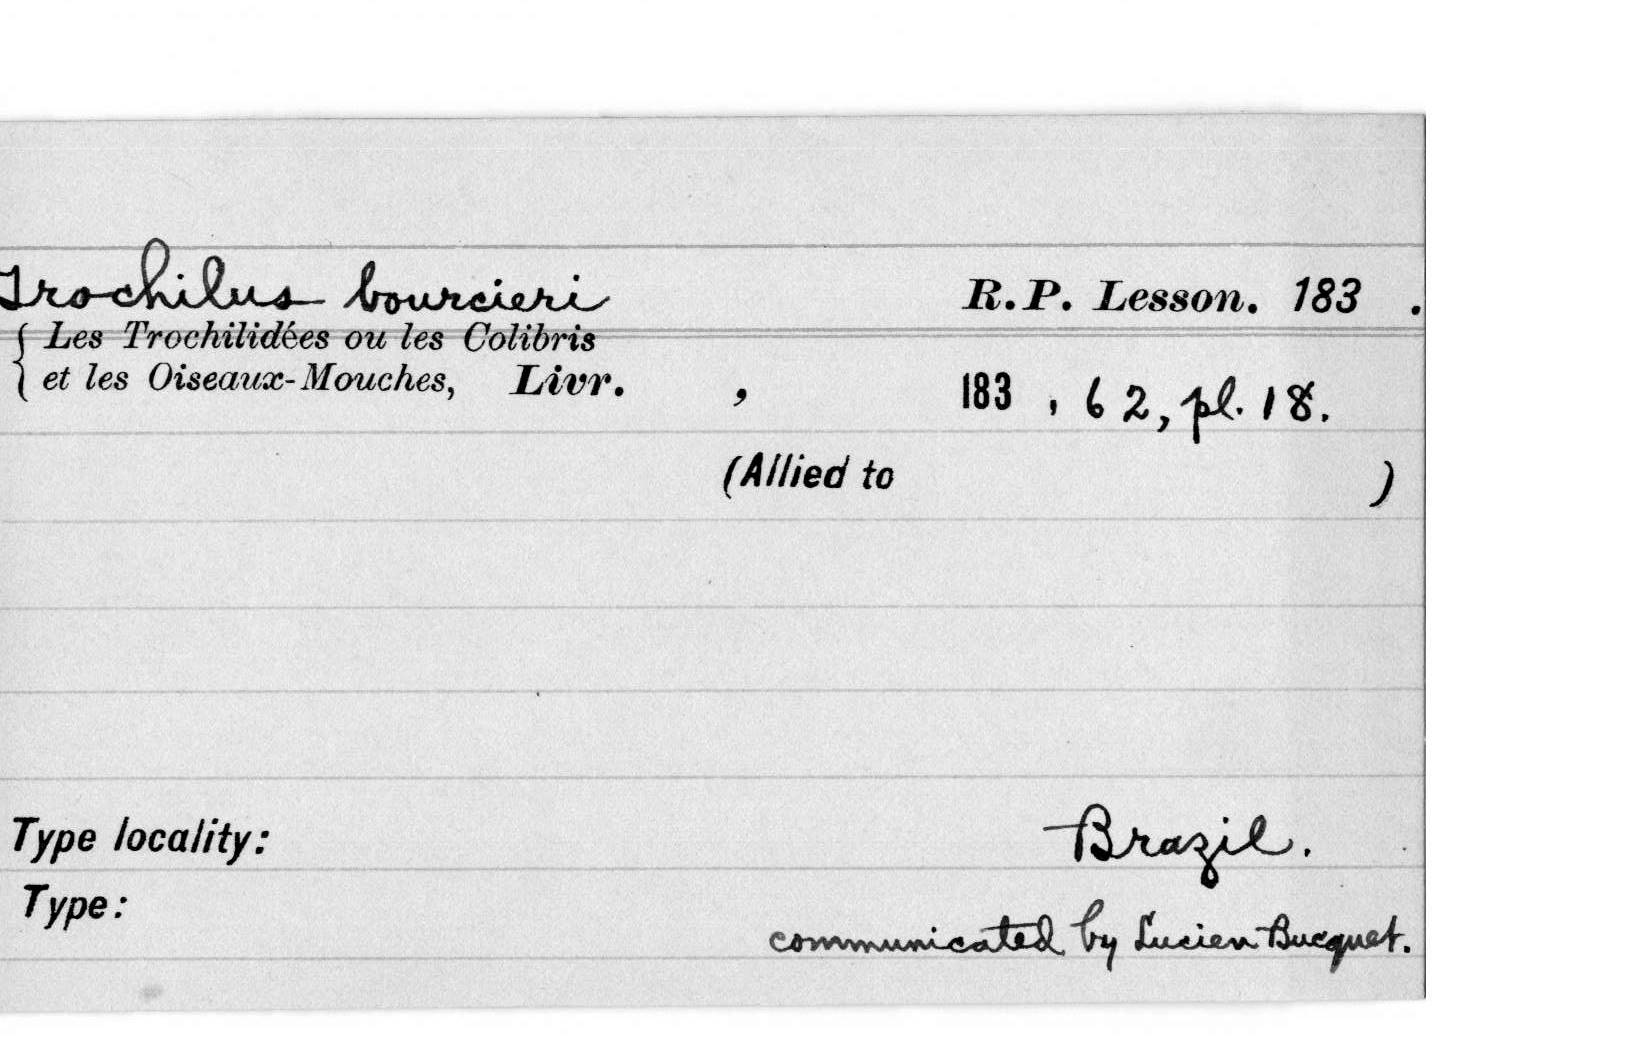 Trochilus bourcieri R.P. Lesson. 183 .
{ Les Trochilidées ou les Colibris
et les Oiseaux-Mouches, Livr. , 183 , 62, pl. 18.
(Allied to )
Type locality: Brazil.
Type:
communicated by Lucien Bucquet.